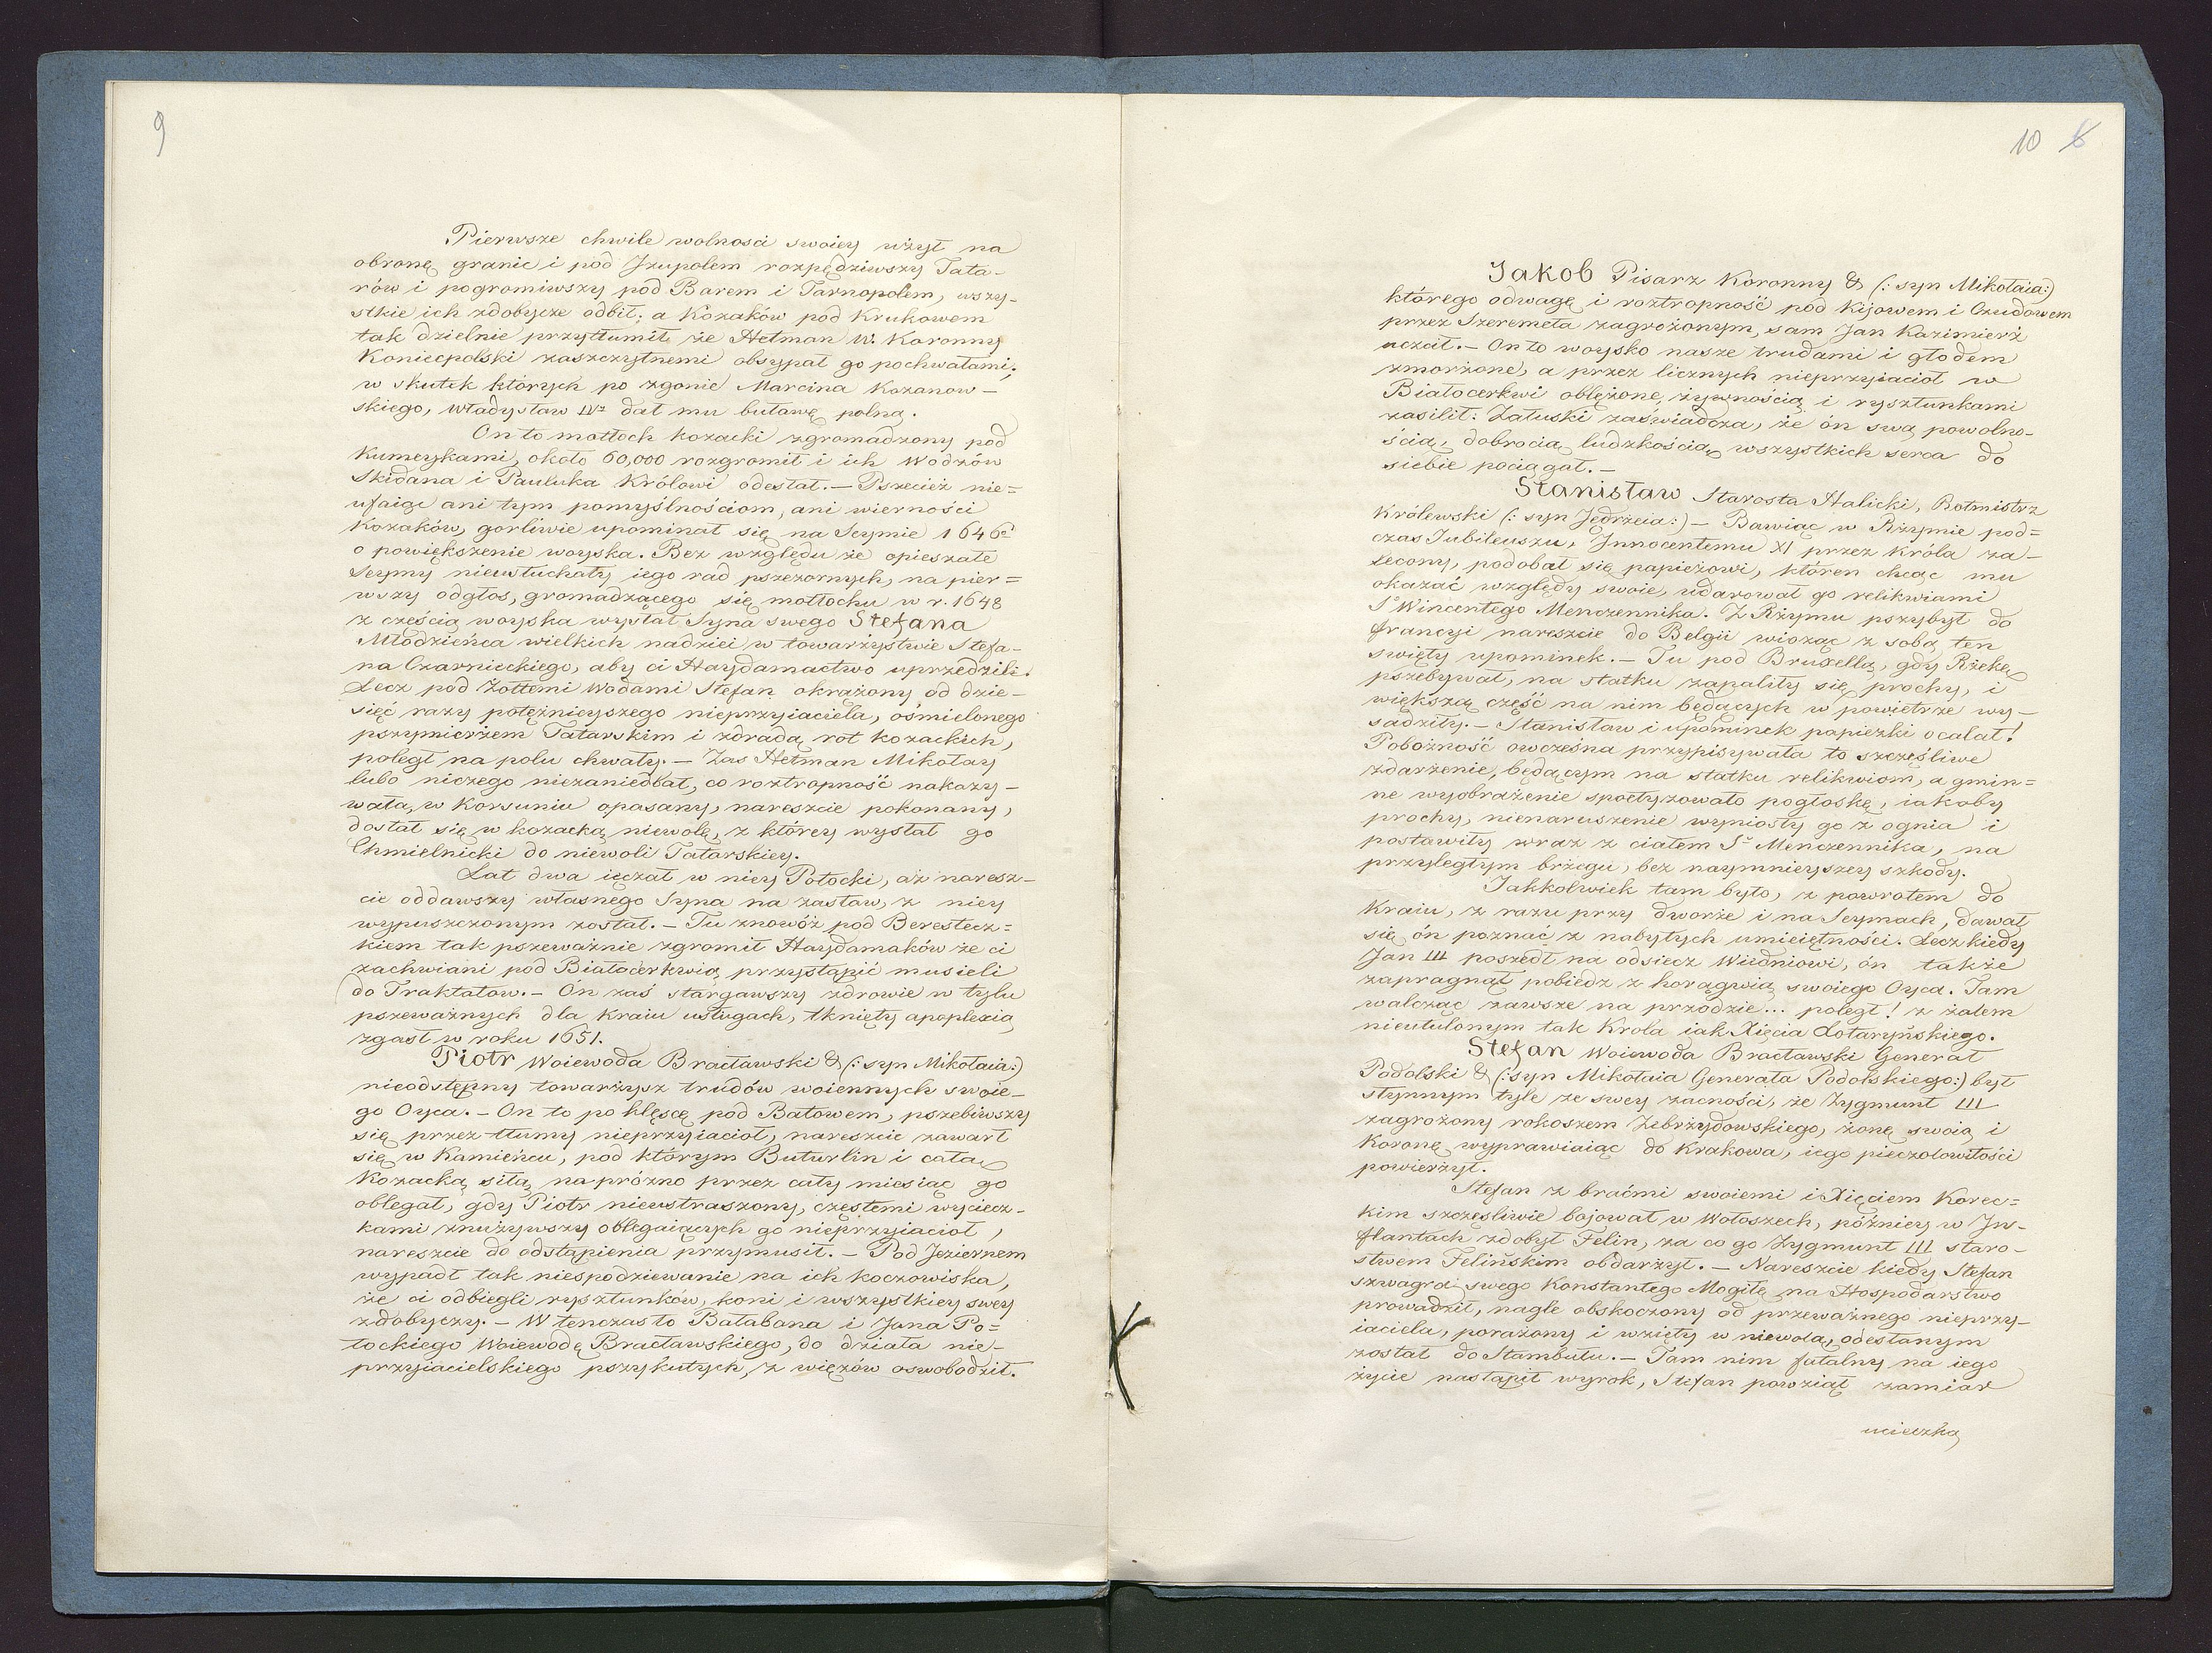 9
Pierwsze chwile wolnosci swoiey użył na
obronę granic i pod Jzupolem rozpędziwszy Tata-
rów i pogromiwszy pod Barem i Tarnopolem, wszy-
stkie ich zdobycze odbił; a Kozaków pod Krukowem
tak dzielnie przytłumił, że Hetman W. Koronny
Koniecpolski zaszczytnemi obsypał go pochwałami;
w skutek których po zgonie Marcina Kazanow-
skiego, Władysław IVz dał mu buławę polną.
On to motłoch kozacki zgromadzony pod
Kumeykami, około 60,000 rozgromił i ich Wodzów
Skidana i Pauluka Królowi odesłał.— Pszecież nie=
ufaiąc ani tym pomyślnościom, ani wierności
Kozaków, gorliwie upominał się na Seymie 1646o
o powiększenie woyska. Bez względu że opieszałe
Seymy niewsłuchały iego rad pszezornych, na pier=
wszy odgłos, gromadzącego się motłochu w r. 1648
z częścią woyska wysłał Syna swego Stefana
Młodzieńca wielkich nadziei w towarzystwie Stefa-
na Czarnieckiego, aby ci Haydamactwo uprzedzili.
Lecz pod Żółtemi Wodami Stefan okrążony od dzie-
sięć razy potężnieyszego nieprzyiaciela, ośmielonego
pszymierzem Tatarskim i zdradą rot kozackich,
poległ na polu chwały.— Zas Hetman Mikołay
lubo niczego niezaniedbał, co roztropność nakazy-
wała, w Korsuniu opasany, nareszcie pokonany,
dostał się w kozacką niewolę, z którey wysłał go
Chmielnicki do niewoli Tatarskiey.
Lat dwa ięczał w niey Potocki, aż naresz-
cie oddawszy własnego Syna na zastaw, z niey
wypuszczonym został.— Tu znowóż pod Berestecz=
kiem tak pszeważnie zgromił Haydamaków że ci
zachwiani pod Białocerkwią przystąpić musieli
do Traktatow.— Ón zaś stargawszy zdrowie w tylu
pszeważnych dla Kraiu usługach, tknięty apoplexią
zgasł w roku 1651.
Piotr Woiewoda Bracławski & (: syn Mikołaia:)
nieodstępny towarzysz trudów woiennych swoie-
go Oyca.— On to po klęscę pod Batowem, pszebiwszy
się przez tłumy nieprzyiacioł, nareszcie zawarł
się w Kamieńcu, pod którym Buturlin i całą
Kozacką siłą, napróżno przez cały miesiąc go
oblegał, gdy Piotr nieustraszony, częstemi wyciecz-
kami znużywszy oblegaiących go nieprzyiacioł,
nareszcie do odstąpienia przymusił.— Pod Jeziernem
wypadł tak niespodziewanie na ich koczowiska,
że ci odbiegli rysztunków, koni i wszystkiey swey
zdobyczy.— Wtenczas to Bałabana i Jana Po=
tockiego Woiewodę Bracławskiego, do działa nie-
przyiacielskiego pszykutych, z więzów oswobodził.
10 6
Jakob Pisarz Koronny & (: syn Mikołaia:)
którego odwagę i roztropność pod Kijowem i Czudowem
przez Szeremeta zagrożonym, sam Jan Kazimierz
uczcił.— On to woysko nasze trudami i głodem
zmorzone, a przez licznych nieprzyiacioł w
Białocerkwi oblężone, żywnością i rysztunkami
zasilił. Załuski zaświadcza, że ón swą powolno-
ścią, dobrocią, ludzkością, wszystkich serca do
siebie pociągał.—
Stanisław Starosta Halicki, Rotmistrz
Królewski (: syn Jędrzeia:)— Bawiąc w Rzymie pod=
czas Jubileuszu, Jnnocentemu XI przez Króla za-
lecony, podobał się papieżowi, któren chcąc mu
okazać względy swoie, udarował go relikwiami
So Wincentego Menczennika. Z Rzymu pszybył do
Francyi nareszcie do Belgii wioząc z sobą ten
swięty upominek.— Tu pod Bruxellą, gdy Rzekę
pszebywał, na statku zapaliły się prochy, i
większą część na nim będących w powietrze wy-
sadziły.— Stanisław i upominek papiezki ocalał!
Pobożność owczesna przypisywała to szczęśliwe
zdarzenie, będącym na statku relikwiom, a gmin=
ne wyobrażenie spoetyzowało pogłoskę, iakoby
prochy, nienaruszenie wyniosły go z ognia i
postawiły wraz z ciałem So Menczennika, na
przyległym brzegu, bez naymnieyszey szkody.
Jakkolwiek tam było, z powrotem do
Kraiu, z razu przy dworze i na Seymach, dawał
się ón poznać z nabytych umieiętności. Lecz kiedy
Jan III poszedł na odsiecz Wiedniowi, ón także
zapragnął pobiedz z horągwią swoiego Oyca. Tam
walcząc zawsze na przodzie... poległ! z żalem
nieutulonym tak Krola iak Xięcia Lotaryńskiego.
Stefan Woiewoda Bracławski Generał
Podolski & (: syn Mikołaia Generała Podolskiego:) był
słynnym tyle ze swey zacności, że Zygmunt III
zagrożony rokoszem Zebrzydowskiego, żonę swoią i
Koronę wyprawiaiąc do Krakowa, iego pieczołowitości
powierzył.
Stefan z braćmi swoiemi i Xięciem Korec=
kim szczęsliwie bojował w Wołoszech, późniey w Jn-
flantach zdobył Felin, za co go Zygmunt III staro-
stwem Felińskim obdarzył.— Nareszcie kiedy Stefan
szwagra swego Konstantego Mogiłę na Hospodarstwo
prowadził, nagle obskoczony od przeważnego nieprzy-
iaciela, porażony i wzięty w niewolą, odesłanym
został do Stambułu.— Tam nim fatalny na iego
życie nastąpił wyrok, Stefan powziął zamiar
ucieczką